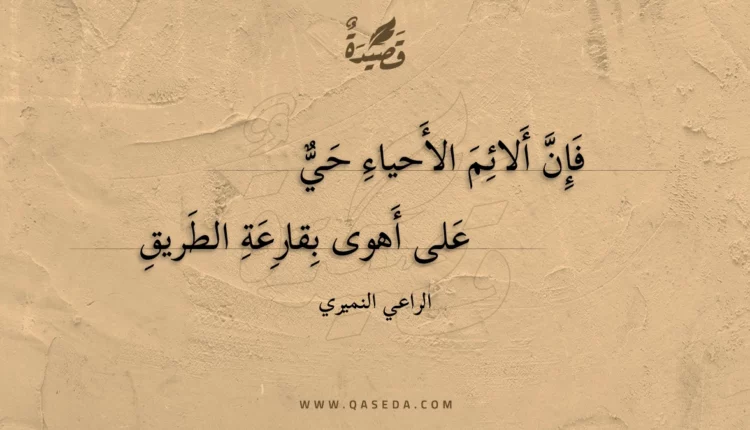 قَصِيْدَةٌ
فَإِنَّ أَلائِمَ الأَحياءِ حَيٌّ
عَلى أَهوى بِقارِعَةِ الطَريقِ
الراعي النميري
WWW.QASEDA.COM